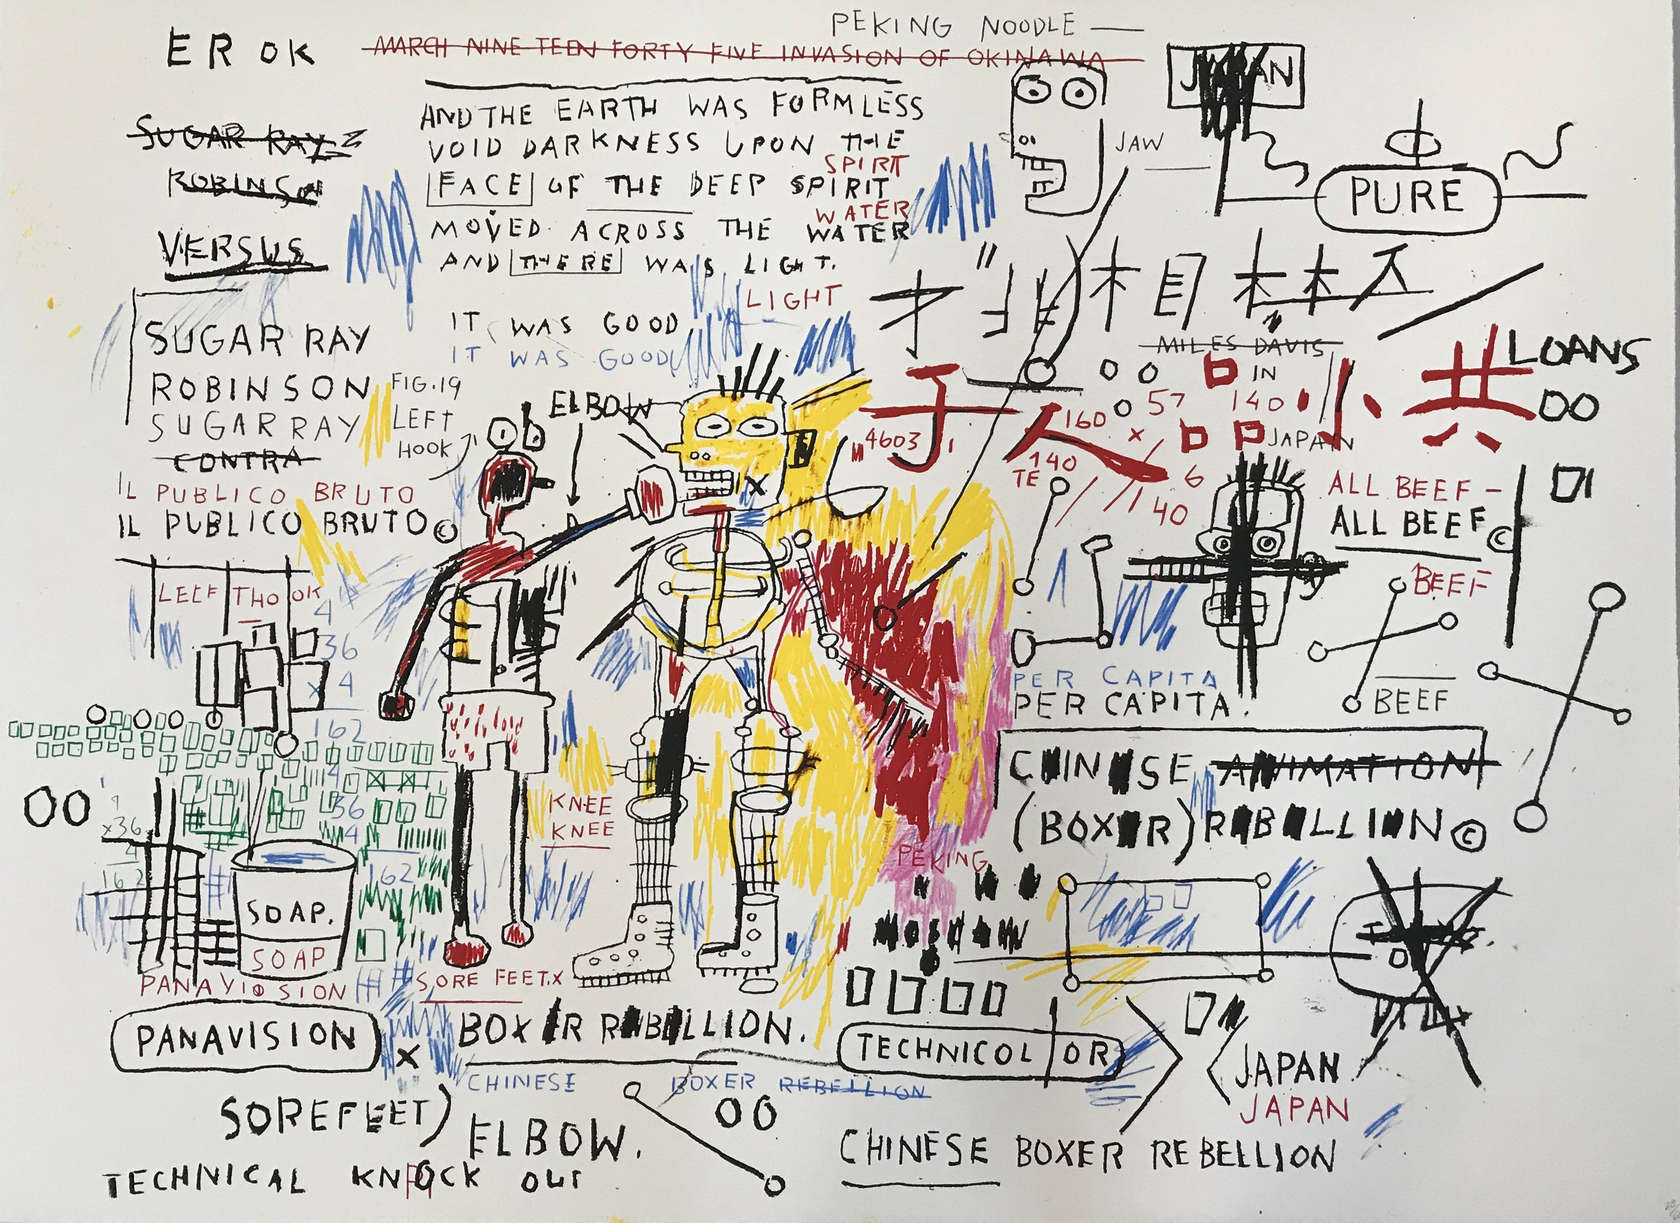 PEKING NOODLE —
ER OK
MARCH NINE TEEN FORTY FIVE INVASION OF OKINAWA
JAPAN
AND THE EARTH WAS FORMLESS
VOID DARKNESS UPON THE
SPIRIT
FACE OF THE DEEP SPIRIT
WATER
MOVED ACROSS THE WATER
AND THERE WAS LIGHT.
LIGHT
IT WAS GOOD
IT WAS GOOD
SUGAR RAY
ROBINSON
VERSUS
JAW
PURE
SUGAR RAY
ROBINSON
SUGAR RAY
CONTRA
IL PUBLICO BRUTO
IL PUBLICO BRUTO ©
FIG. 19
LEFT
HOOK
ELBOW
MILES DAVIS
IN
JAPAN
LOANS
OO
子人小共
160
57
140
4603
X
6
140
TE
40
ALL BEEF –
ALL BEEF ©
BEEF
BEEF
PER CAPITA
PER CAPITA.
CHINESE ANIMATION
(BOXER) REBELLION ©
LEEF THO OK
4
36
X 4
162
4
36
4
162
OO
x36
4
162
KNEE
KNEE
PEKING
SOAP.
SOAP
PANAVISION
SORE FEET.X
PANAVISION
X
BOXER REBELLION.
TECHNICOLOR
CHINESE BOXER REBELLION
JAPAN
JAPAN
SOREFEET)
ELBOW.
OO
CHINESE BOXER REBELLION
TECHNICAL KNOCK OUT